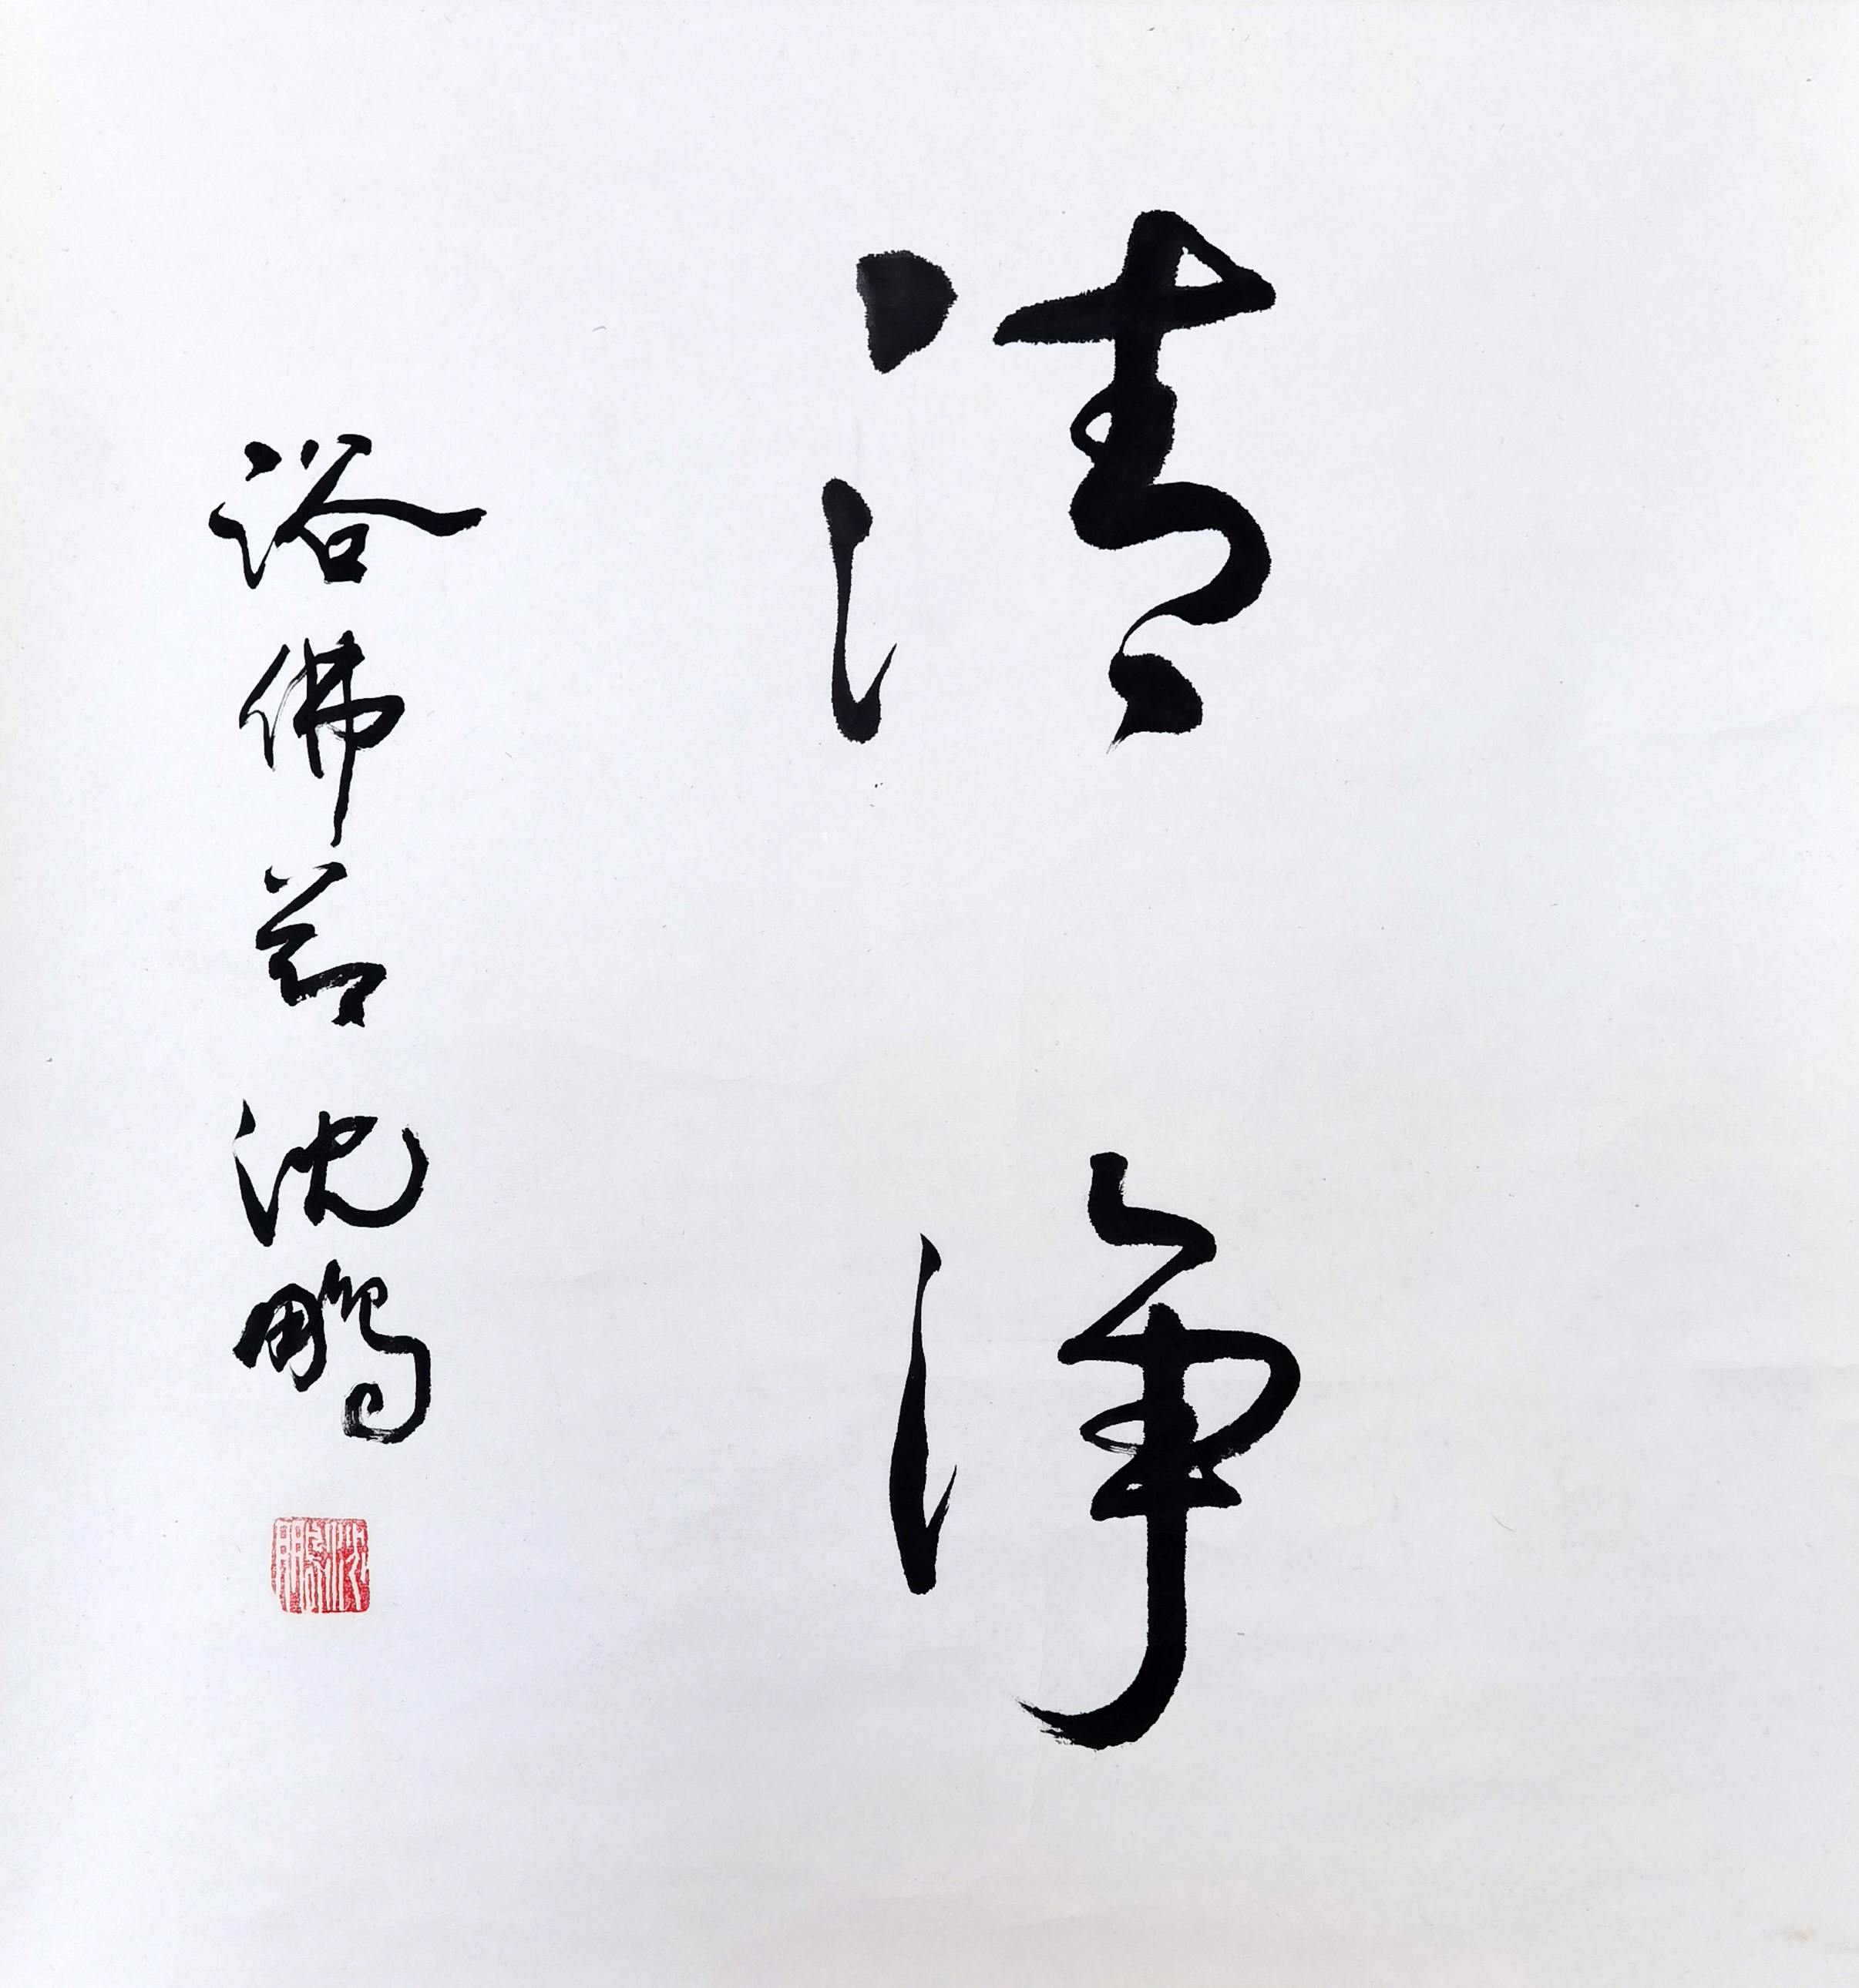 清净
浴佛节沈鹏
沈鹏